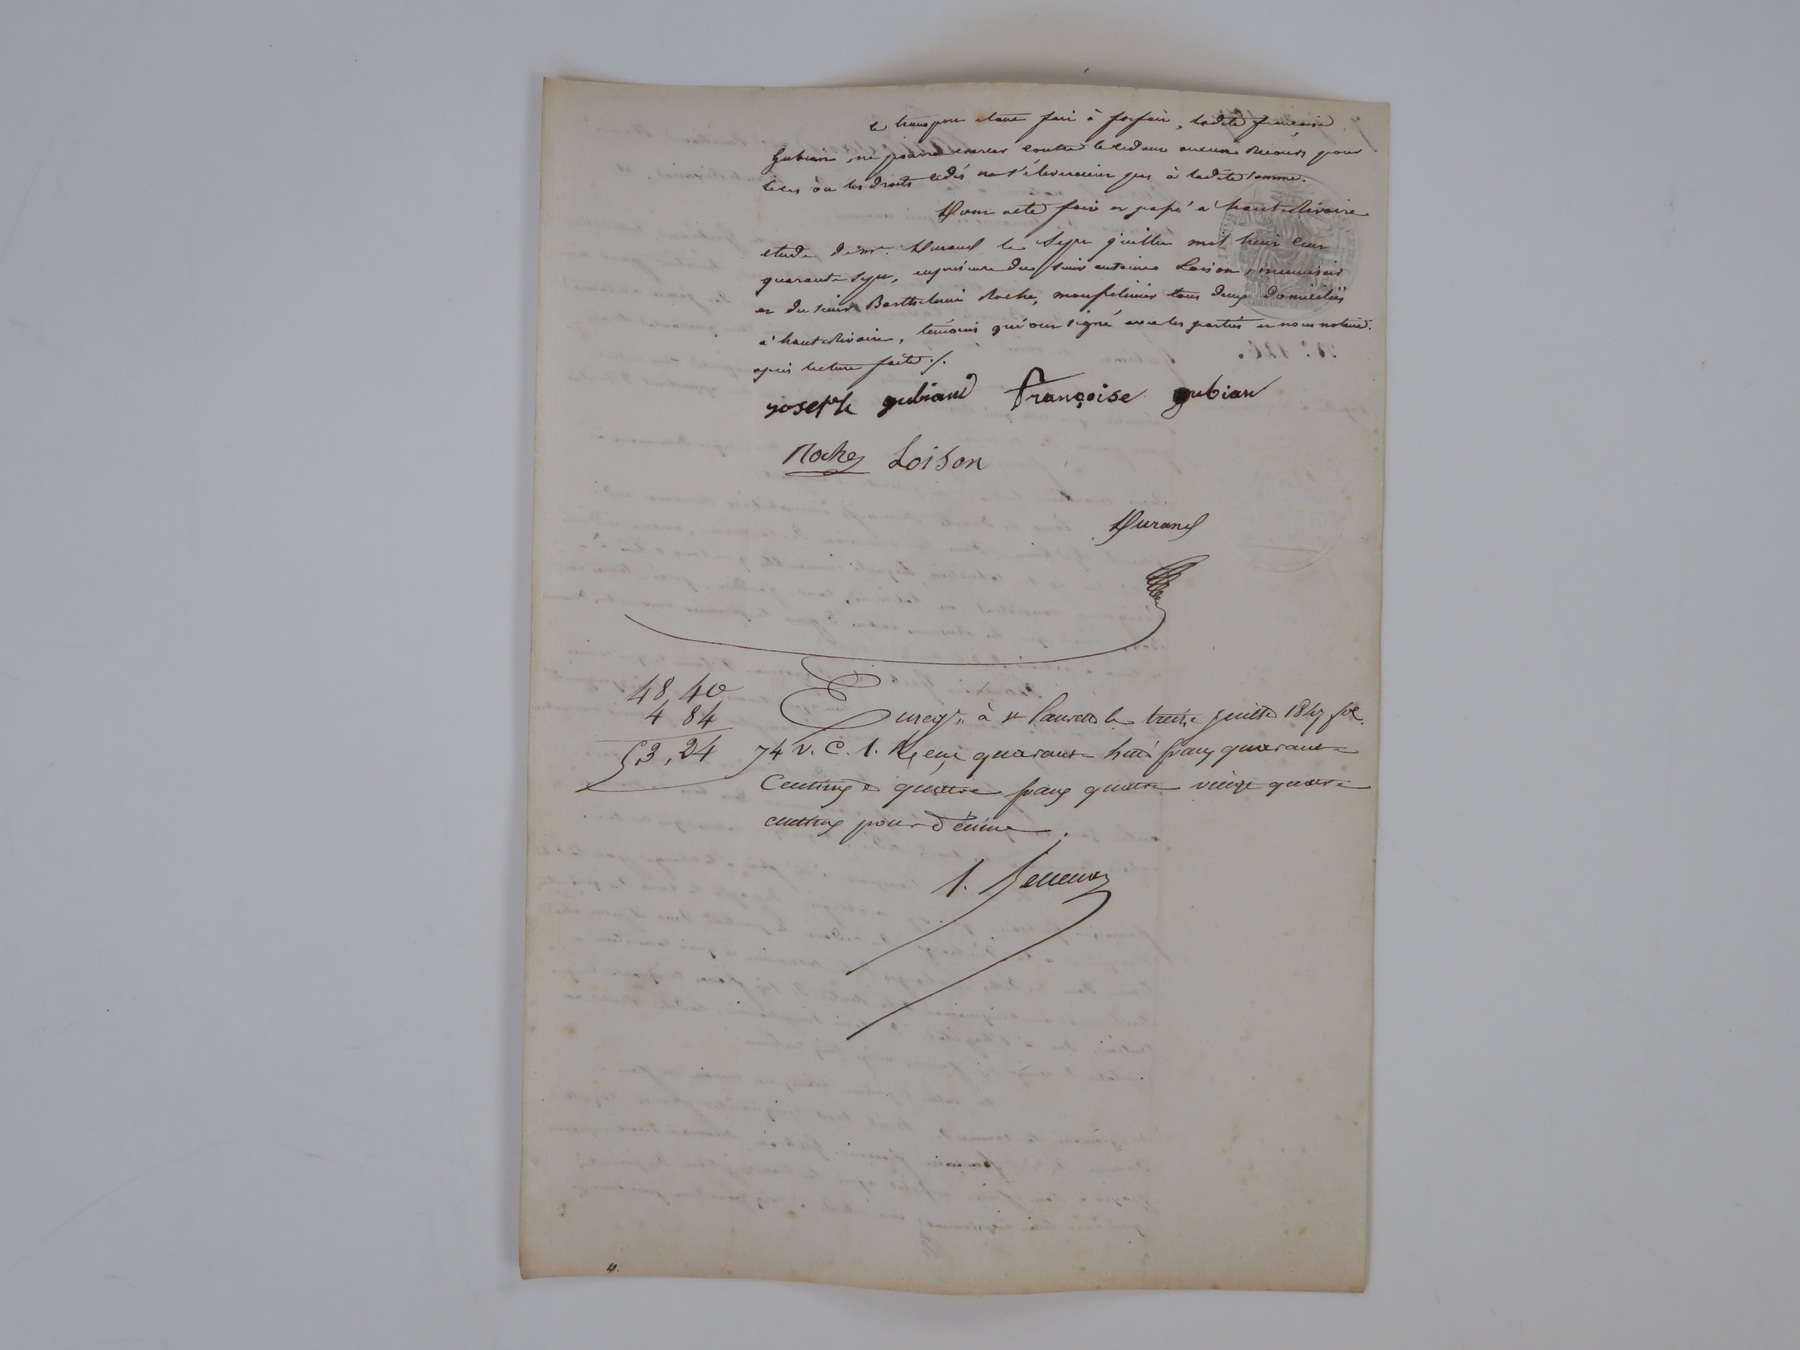 Le transport étant fait à forfait, ladite françoise
Gubian, ne pourra exercer contre le cédant aucun recours pour
le cas où les droits cédés ne s'éleveraient pas à ladite somme.
Dont acte fait et passé à haute Rivoire
etude de me. Durand le sept juillet mil huit cent
quarante sept, en présence des sieurs antoine Loison, menuisier
et du sieur Barthelemi Roche, domiciliés
à haute Rivoire, témoins qui ont signé avec les parties et nous notaire.
après lecture faite ./.
joseph gubiand françoise gubian
Roche Loison
Durand
48 40
4 84
53,24
Enreg. à st Laurent le treize juillet 1847 fol.
74 v. C. 1. Reçu quarante huit francs quarante
Centimes et quatre francs quatre vingt quatre
centimes pour décime.